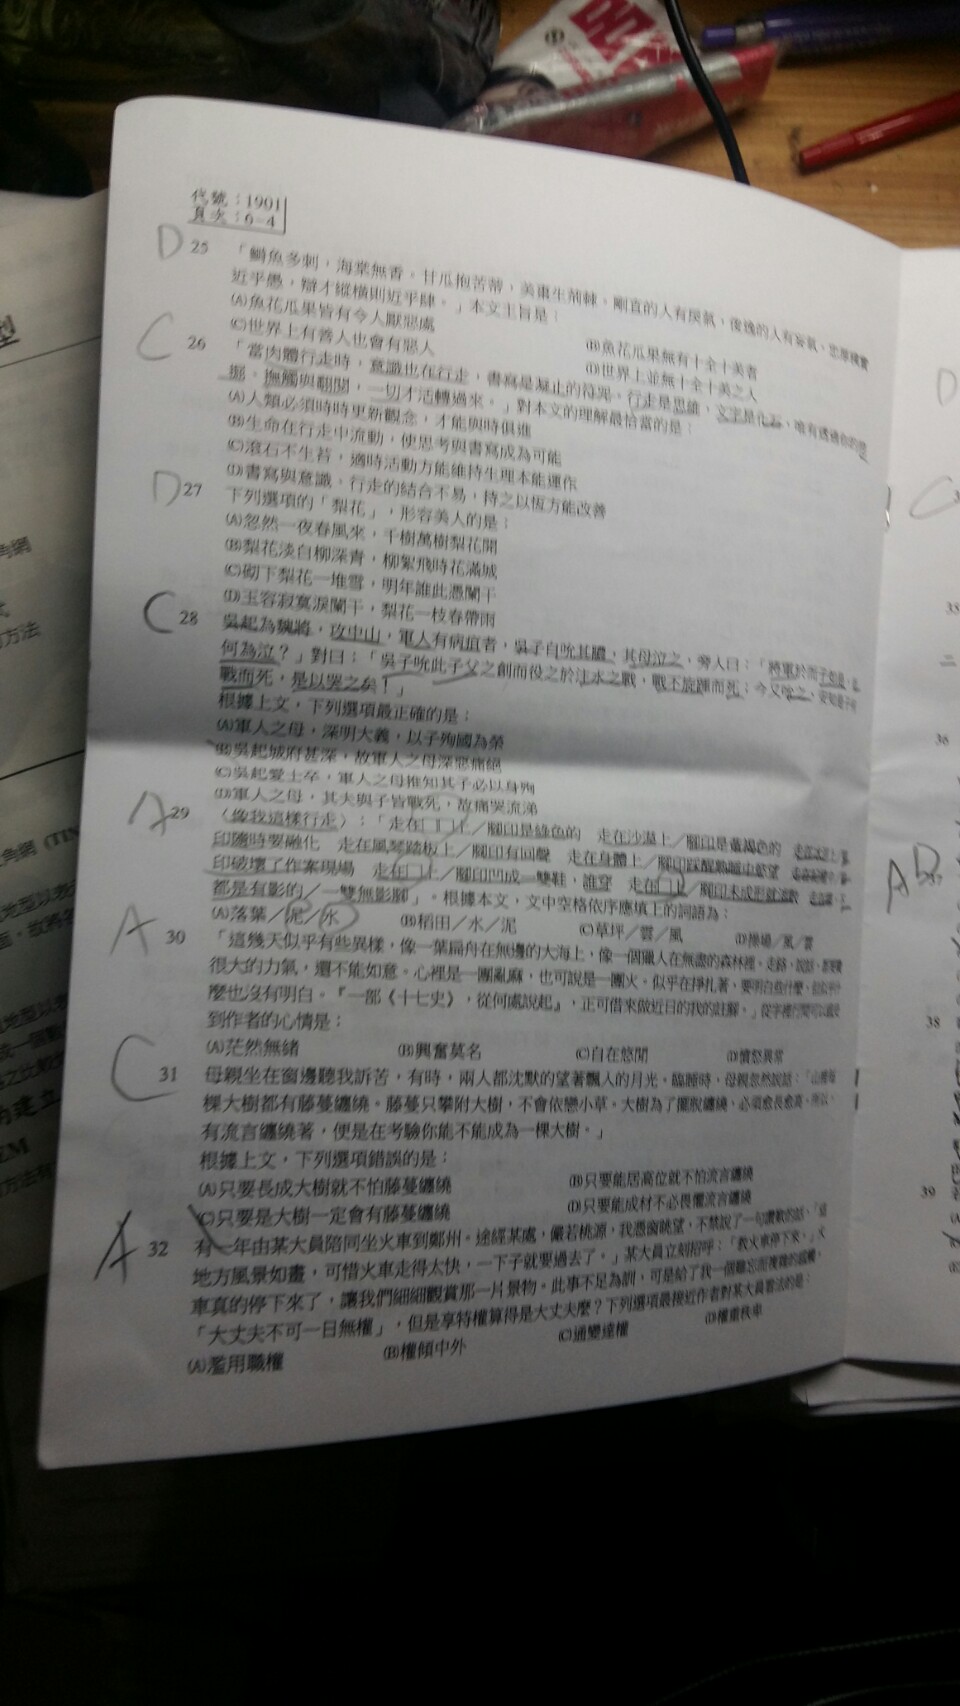 代號：1901
頁次：6－4
D 25 「鰣魚多刺，海棠無香。甘瓜抱苦蒂，美棗生荊棘。剛直的人有戾氣，俊逸的人有妄氣，忠厚樸實
近乎愚，辯才縱橫則近乎肆。」本文主旨是：
(A)魚花瓜果皆有令人厭惡處
(B)魚花瓜果無有十全十美者
(C)世界上有善人也會有惡人
(D)世界上並無十全十美之人
C 26 「當肉體行走時，意識也在行走，書寫是凝止的符咒。行走是思維，文字是化石，唯有透過你的
掘、撫觸與翻閱，一切才活轉過來。」對本文的理解最恰當的是：
(A)人類必須時時更新觀念，才能與時俱進
(B)生命在行走中流動，使思考與書寫成為可能
(C)滾石不生苔，適時活動方能維持生理本能運作
(D)書寫與意識、行走的結合不易，持之以恆方能改善
D 27 下列選項的「梨花」，形容美人的是：
(A)忽然一夜春風來，千樹萬樹梨花開
(B)梨花淡白柳深青，柳絮飛時花滿城
(C)砌下梨花一堆雪，明年誰此憑闌干
(D)玉容寂寞淚闌干，梨花一枝春帶雨
C 28 吳起為魏將，攻中山，軍人有病疽者，吳子自吮其膿，其母泣之，旁人曰：「將軍於而子如是，
何為泣？」對曰：「吳子吮此子父之創而役之於注水之戰，戰不旋踵而死；今又吮之，安知是子何
戰而死，是以哭之矣！」
根據上文，下列選項最正確的是：
(A)軍人之母，深明大義，以子殉國為榮
(B)吳起城府甚深，故軍人之母深惡痛絕
(C)吳起愛士卒，軍人之母推知其子必以身殉
(D)軍人之母，其夫與子皆戰死，故痛哭流涕
A 29 〈像我這樣行走〉：「走在□□上／腳印是綠色的 走在沙漠上／腳印是黃褐色的
印隨時要融化 走在風琴踏板上／腳印有回聲 走在身體上／腳印踩醒熟睡中慾望
印破壞了作案現場 走在□上／腳印凹成一雙鞋，誰穿 走在□上／腳印未成形就流散
都是有影的／一雙無影腳」。根據本文，文中空格依序應填上的詞語為：
(A)落葉／泥／水
(B)稻田／水／泥
(C)草坪／雲／風
(D)操場／風／雲
A 30 「這幾天似乎有些異樣，像一葉扁舟在無邊的大海上，像一個獵人在無盡的森林裡。走路、說話，都要費
很大的力氣，還不能如意。心裡是一團亂麻，也可說是一團火。似乎在掙扎著，要明白些什麼，但似乎什
麼也沒有明白。『一部《十七史》，從何處說起』，正可借來做近日的我的註腳。」從字裡行間可以讀
到作者的心情是：
(A)茫然無緒
(B)興奮莫名
(C)自在悠閒
(D)憤怒異常
C 31 母親坐在窗邊聽我訴苦，有時，兩人都沈默的望著飄人的月光。臨睡時，母親忽然說話：「山裡每
棵大樹都有藤蔓纏繞。藤蔓只攀附大樹，不會依戀小草。大樹為了擺脫纏繞，必須愈長愈高。所以，
有流言纏繞著，便是在考驗你能不能成為一棵大樹。」
根據上文，下列選項錯誤的是：
(A)只要長成大樹就不怕藤蔓纏繞
(B)只要能居高位就不怕流言纏繞
(C)只要是大樹一定會有藤蔓纏繞
(D)只要能成材不必畏懼流言纏繞
A 32 有一年由某大員陪同坐火車到鄭州。途經某處，儼若桃源，我憑窗眺望，不禁說了一句讚歎的話，「這
地方風景如畫，可惜火車走得太快，一下子就要過去了。」某大員立刻招呼：「教火車停下來。」火
車真的停下來了，讓我們細細觀賞那一片景物。此事不足為訓，可是給了我一個難忘而複雜的感觸。
「大丈夫不可一日無權」，但是享特權算得是大丈夫麼？下列選項最接近作者對某大員看法的是：
(A)濫用職權
(B)權傾中外
(C)通變達權
(D)權重秩卑